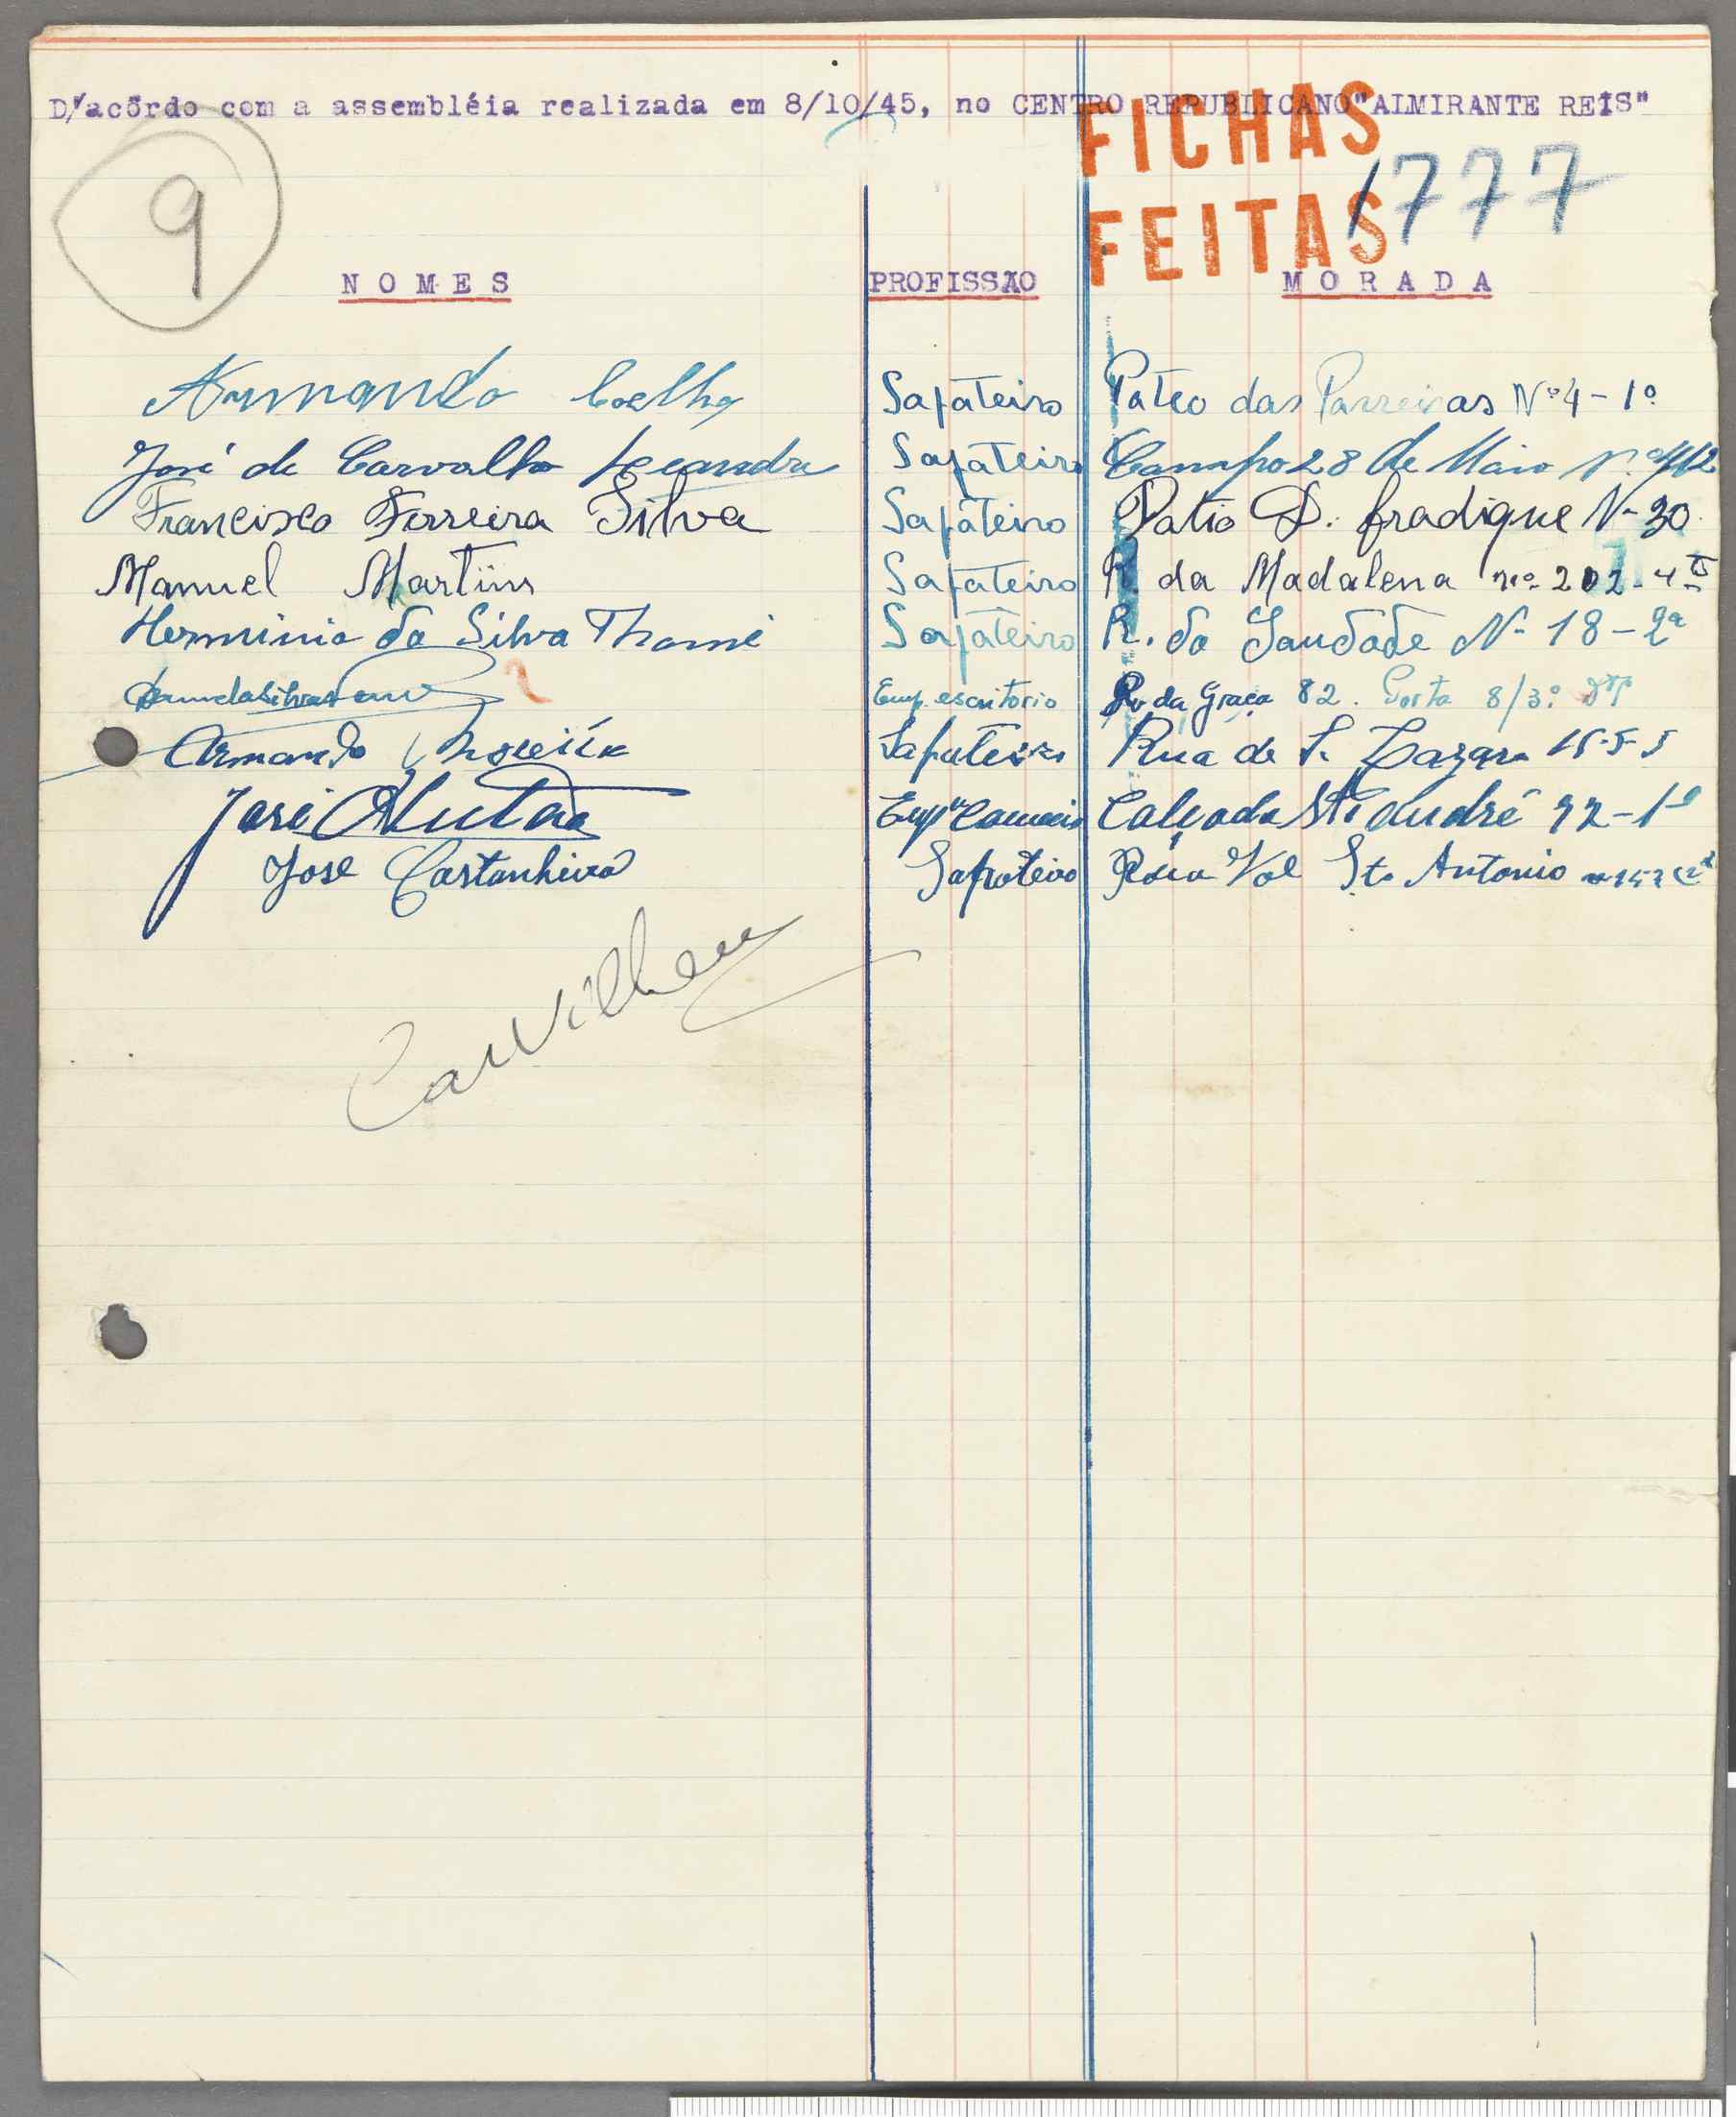 D/acôrdo com a assembléia realizada em 8/10/45, no CENTRO REPUBLICANO "ALMIRANTE REIS"
FICHAS
FEITAS
1777
9
NOMES PROFISSÃO MORADA
Armando Coelho Sapateiro Pateo das Parreiras Nº 4-1º
José de Carvalho Sapateiro Campo 28 de Maio nº 412
Francisco Ferreira Silva Sapateiro Patio D. fradique N- 30
Manuel Martins Sapateiro R. da Madalena nº 202-4º
Herminio da Silva Thomé Sapateiro R. da Saudade N- 18-2º
Emp. escritorio R. da Graça 82. Porta 8/3º Dtº
Armando Moreira Sapateiro Rua de S. Lazaro 15-5-5
José Emp. Comercio Calçada Stº André 92-1º
Jose Castanheira Sapateiro Rua Vale Stº Antonio